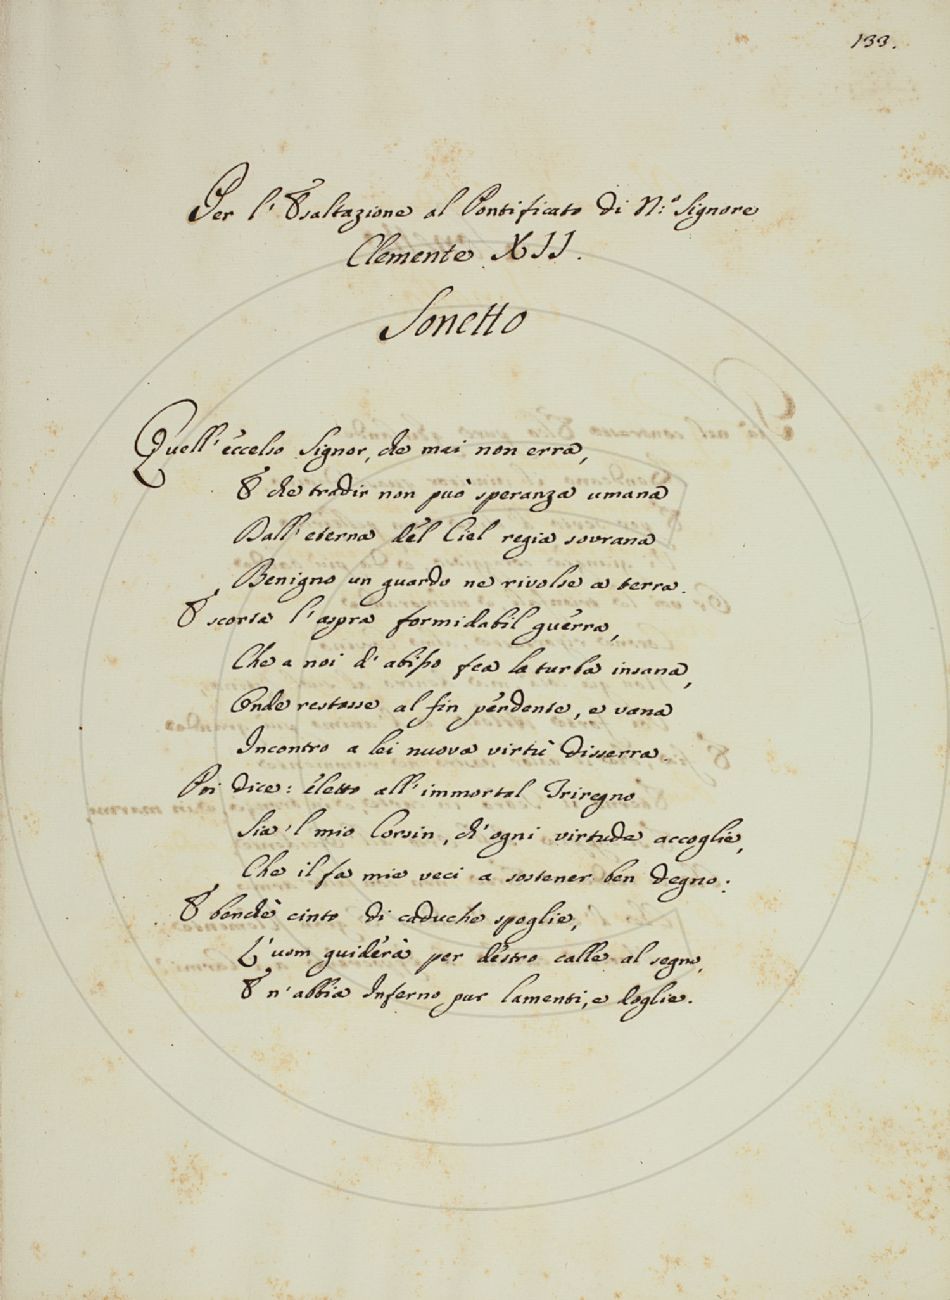 133.
Per l'Esaltazione al Pontificato di N:º Signore
Clemente XII.
Sonetto
Quell'eccelso Signor, che mai non erra,
E che tradir non può speranza umana
Dall'eterna del Ciel regia sovrana
Benigno un guardo ne rivolse a terra.
E scorta l'aspra formidabil guerra,
Che a noi d'abisso fea la turba insana,
Onde restasse al fin perdente, e vana
Incontro a lei nuova virtù disserra.
Poi dice: eletto all'immortal Triregno
Sia 'l mio Corsin, ch'ogni virtude accoglie,
Che il fa mie veci a sostener ben degno:
E benchè cinto di caduche spoglie,
L'uom guiderà per destro calle al segno,
E n'abbia Inferno pur lamenti, e doglie.